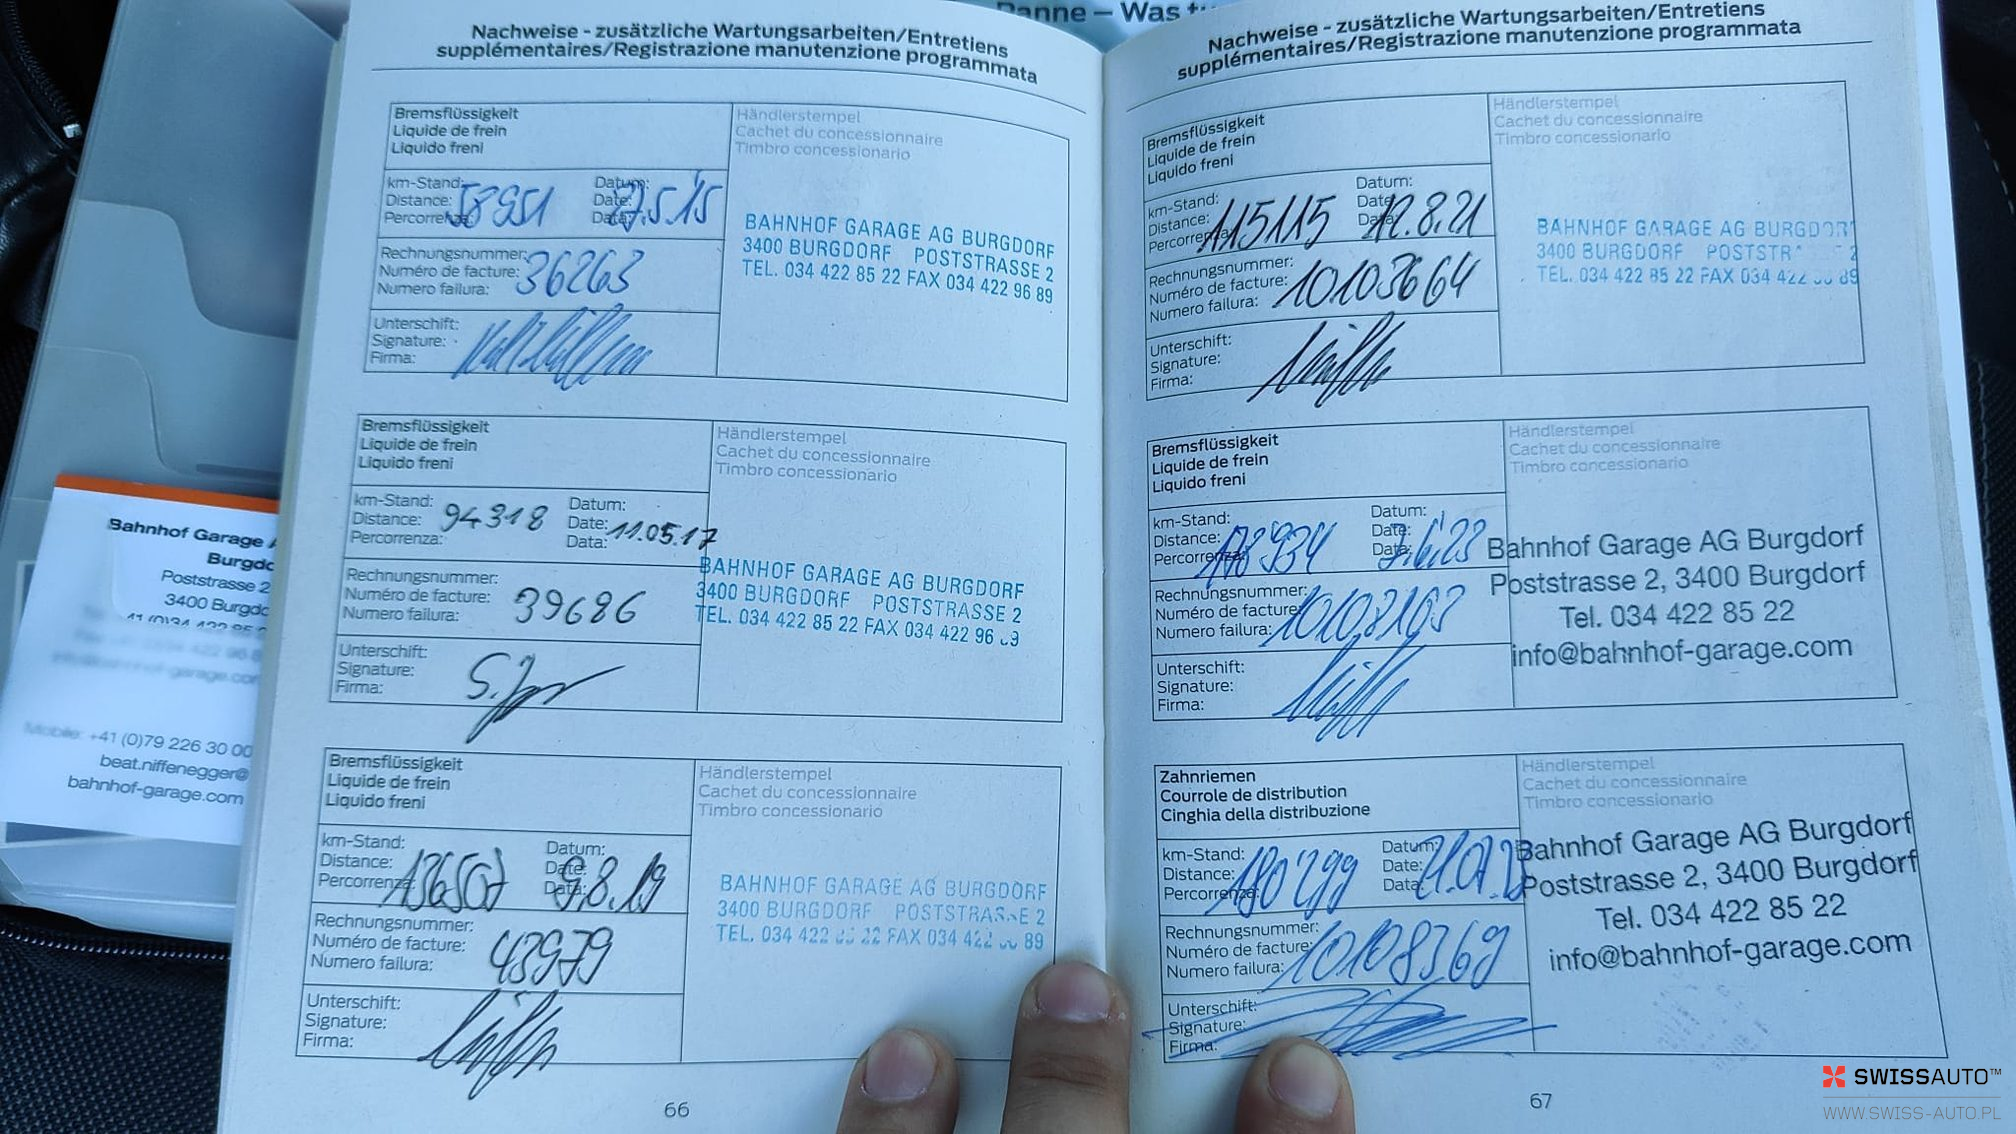 Panne – Was tu
Nachweise - zusätzliche Wartungsarbeiten/Entretiens
supplémentaires/Registrazione manutenzione programmata
Bremsflüssigkeit
Liquide de frein
Liquido freni
Händlerstempel
Cachet du concessionnaire
Timbro concessionario
km-Stand:
Distance:
Percorrenza: 58951
Datum:
Date:
Data: 27.5.15
Rechnungsnummer:
Numéro de facture:
Numero failura: 36263
Unterschift:
Signature:
Firma:
BAHNHOF GARAGE AG BURGDORF
3400 BURGDORF POSTSTRASSE 2
TEL. 034 422 85 22 FAX 034 422 96 89
Bremsflüssigkeit
Liquide de frein
Liquido freni
Händlerstempel
Cachet du concessionnaire
Timbro concessionario
km-Stand:
Distance: 94318
Percorrenza:
Datum:
Date: 11.05.17
Data:
Rechnungsnummer:
Numéro de facture: 39686
Numero failura:
Unterschift:
Signature:
Firma:
BAHNHOF GARAGE AG BURGDORF
3400 BURGDORF POSTSTRASSE 2
TEL. 034 422 85 22 FAX 034 422 96
Bremsflüssigkeit
Liquide de frein
Liquido freni
Händlerstempel
Cachet du concessionnaire
Timbro concessionario
km-Stand:
Distance:
Percorrenza:
Datum:
Date:
Data: 9.8.19
Rechnungsnummer:
Numéro de facture: 43979
Numero failura:
Unterschift:
Signature:
Firma:
BAHNHOF GARAGE AG BURGDORF
3400 BURGDORF POSTSTRASSE 2
TEL. 034 422 22 FAX 034 422 89
66
Nachweise - zusätzliche Wartungsarbeiten/Entretiens
supplémentaires/Registrazione manutenzione programmata
Bremsflüssigkeit
Liquide de frein
Liquido freni
Händlerstempel
Cachet du concessionnaire
Timbro concessionario
km-Stand:
Distance:
Percorrenza: 115115
Datum:
Date:
Data: 12.8.21
Rechnungsnummer:
Numéro de facture: 10103664
Numero failura:
Unterschift:
Signature:
Firma:
BAHNHOF GARAGE AG BURGDORF
3400 BURGDORF POSTSTR 2
TEL. 034 422 85 22 FAX 034 422 89
Bremsflüssigkeit
Liquide de frein
Liquido freni
Händlerstempel
Cachet du concessionnaire
Timbro concessionario
km-Stand:
Distance:
Percorrenza: 178934
Datum:
Date:
Data:
Rechnungsnummer:
Numéro de facture:
Numero failura: 10108163
Unterschift:
Signature:
Firma:
Bahnhof Garage AG Burgdorf
Poststrasse 2, 3400 Burgdorf
Tel. 034 422 85 22
info@bahnhof-garage.com
Zahnriemen
Courrole de distribution
Cinghia della distribuzione
Händlerstempel
Cachet du concessionnaire
Timbro concessionario
km-Stand:
Distance:
Percorrenza: 180'299
Datum:
Date:
Data:
Rechnungsnummer:
Numéro de facture:
Numero failura: 10108369
Unterschift:
Signature:
Firma:
Bahnhof Garage AG Burgdorf
Poststrasse 2, 3400 Burgdorf
Tel. 034 422 85 22
info@bahnhof-garage.com
67
Bahnhof Garage
Burgdo
Poststrasse 2
3400 Burgdo
Mobile: +41 (0)79 226 30 00
beat.niffenegger@
bahnhof-garage.com
SWISSAUTO™
WWW.SWISS-AUTO.PL